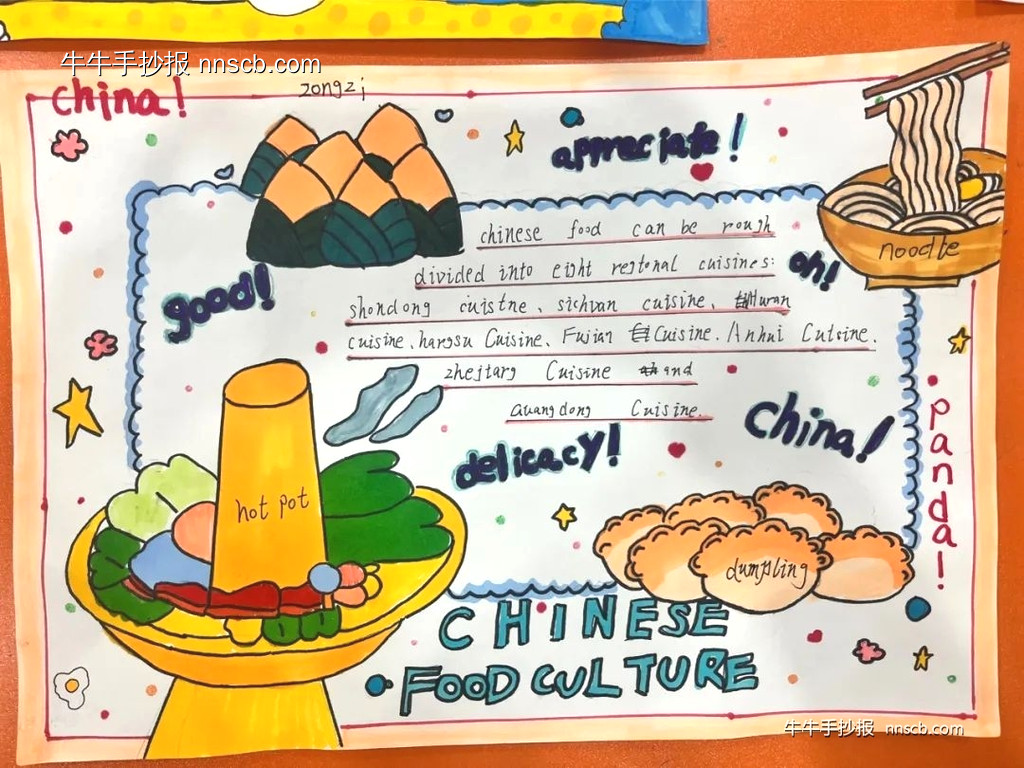 牛牛手抄报 nnscb.com
china!
zongzi
appreciate!
noodle
chinese food can be rough
divided into eight regional cuisines:
oh!
good!
shondong cuistne、sichvan cuisine、Huvan
cuisine、hangsu Cuisine、Fujian Cuisine. Anhui Cutsine.
zhejtang Cuisine and
Guangdong Cuisine.
China!
delicacy!
panda!
hot pot
dumpling
CHINESE
FOOD CULTURE
牛牛手抄报 nnscb.com